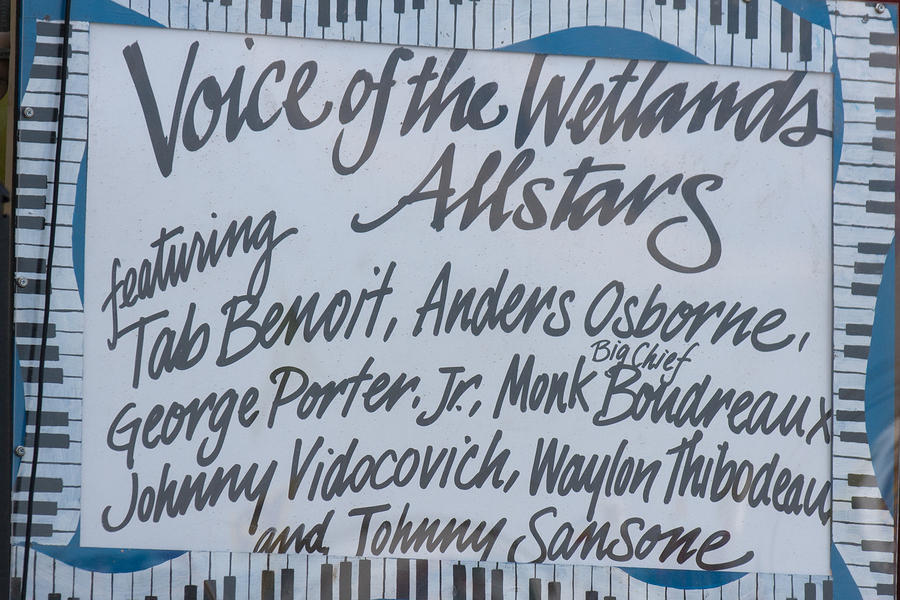 Voice of the Wetlands
Allstars
featuring
Tab Benoit, Anders Osborne,
George Porter. Jr., Monk Big Chief Boudreaux
Johnny Vidocovich, Waylon Thibodeau,
and Johnny Sansone